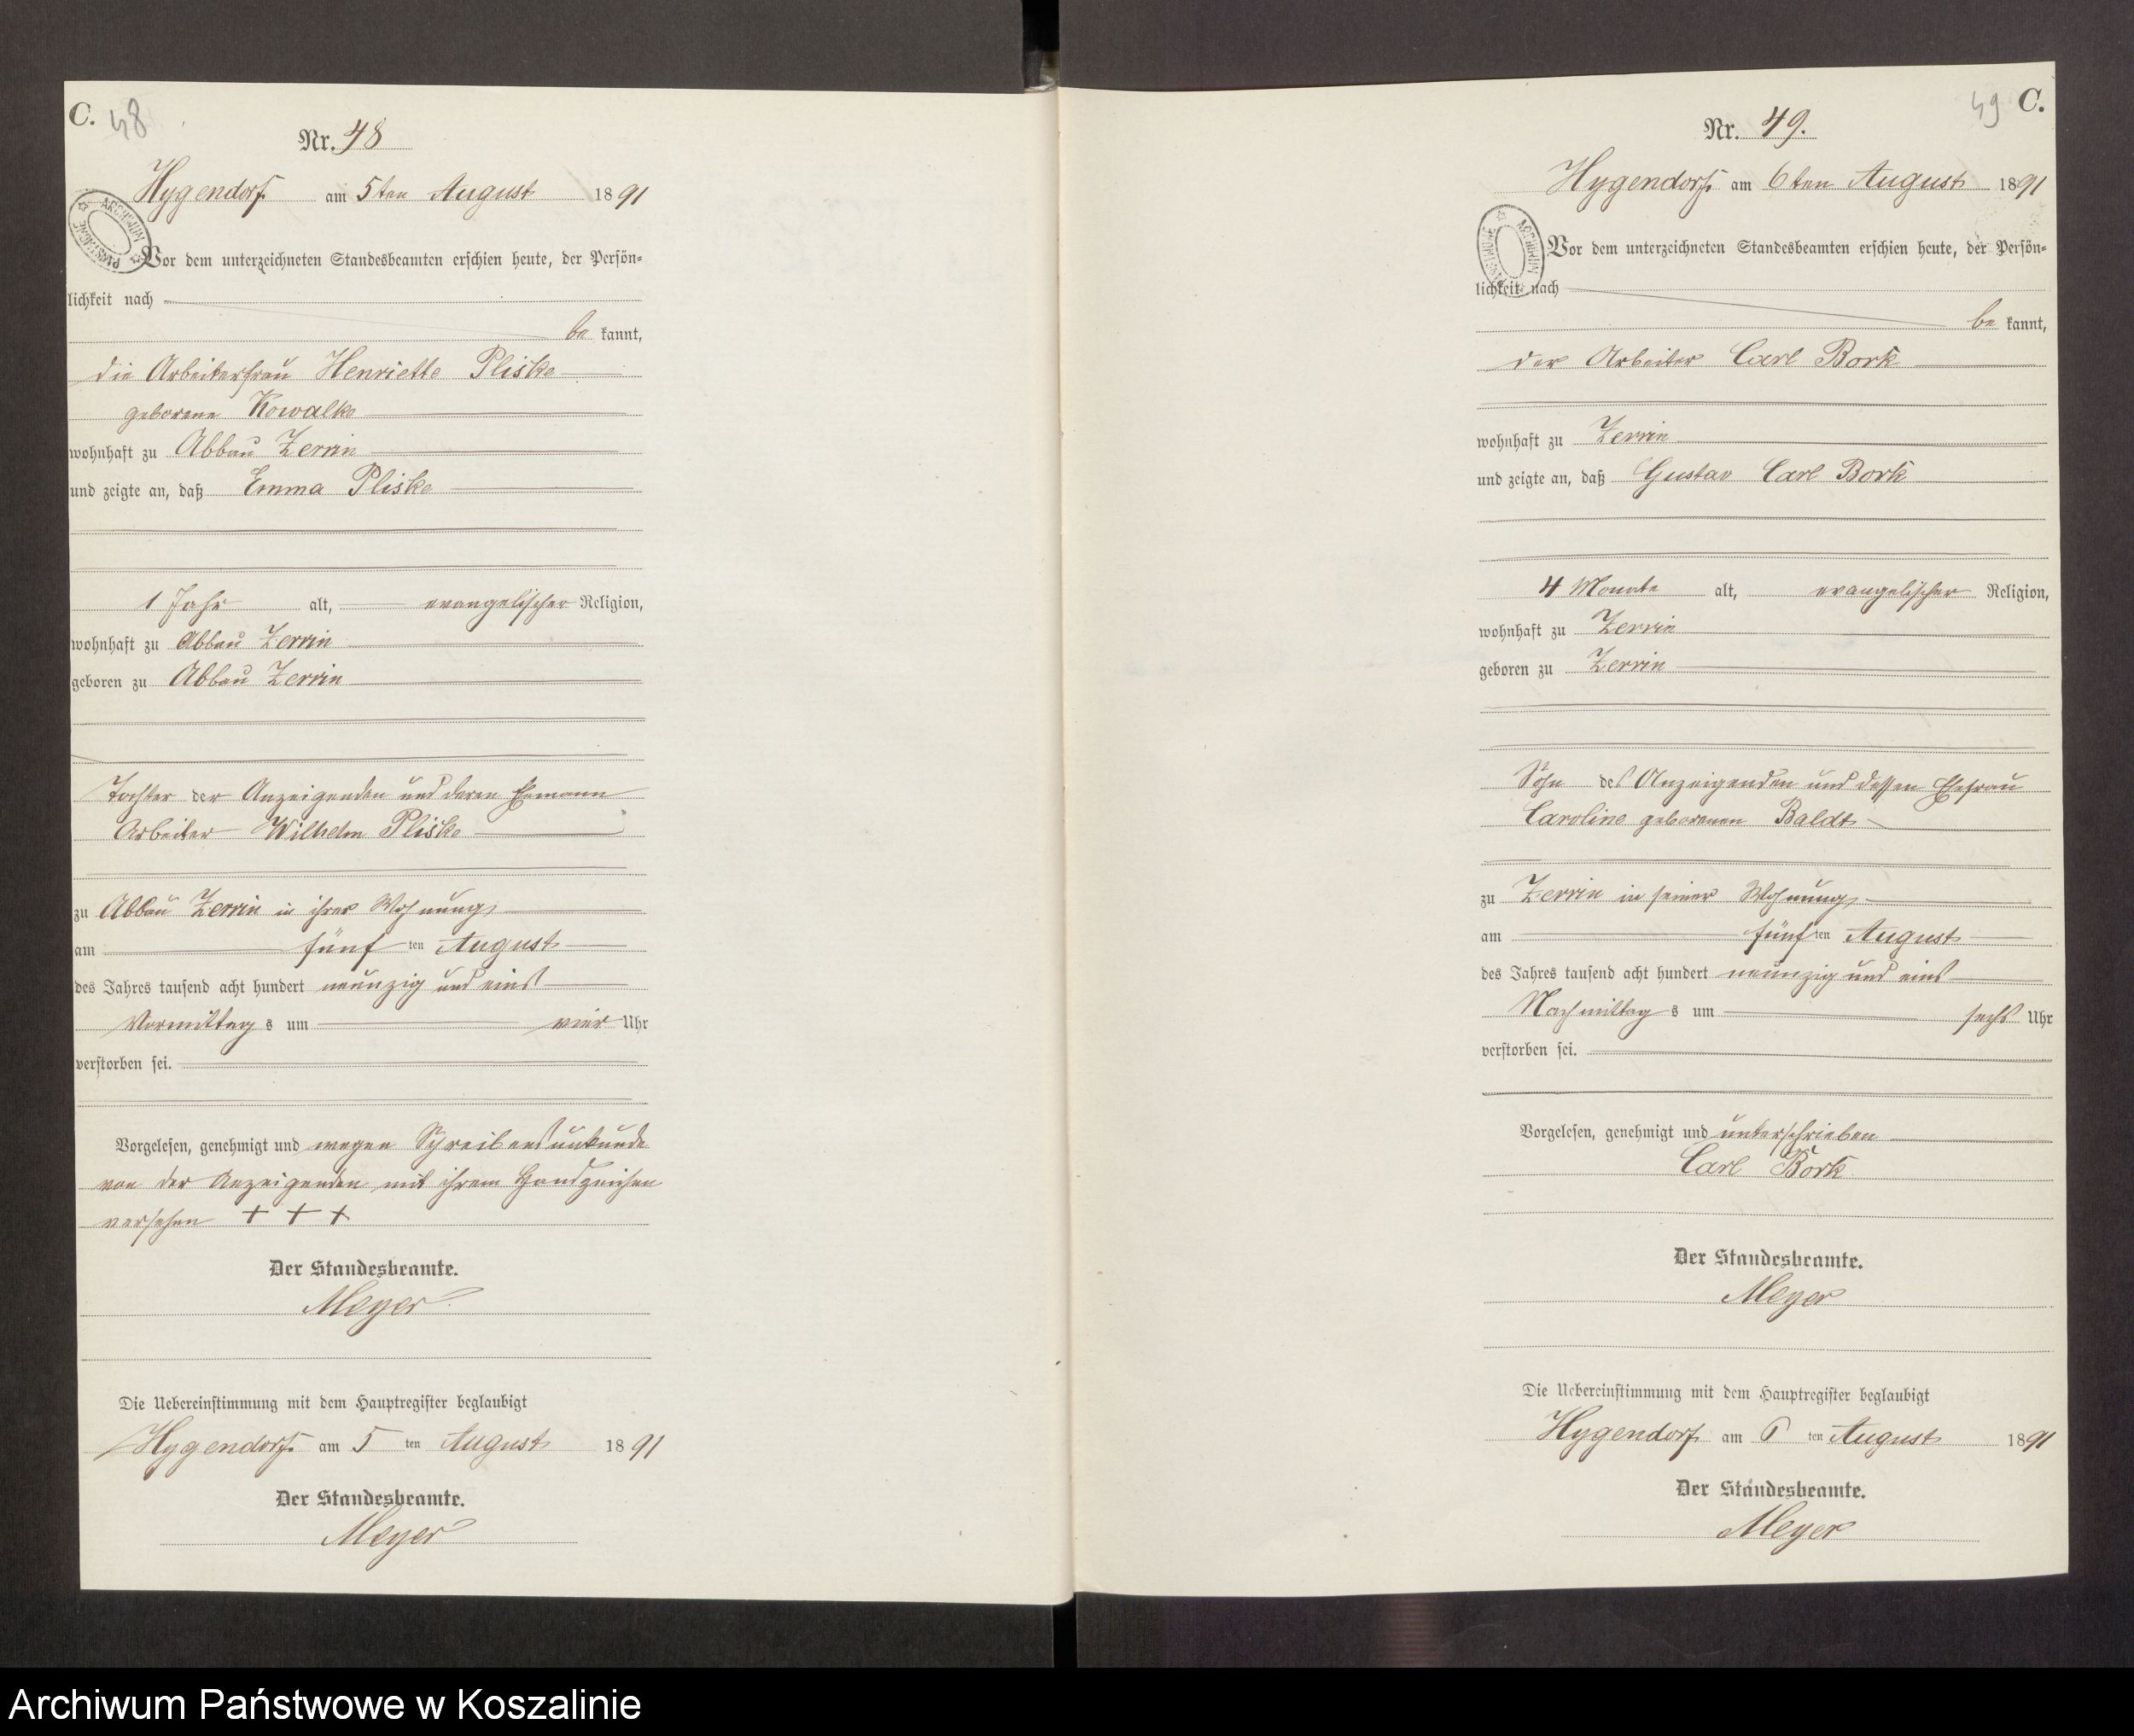 C. 48
Nr. 48
Hygendorf am 5ten August 1891
ARCHIWUM PAŃSTWOWE
Vor dem unterzeichneten Standesbeamten erschien heute, der Persön-
lichkeit nach
be kannt,
die Arbeiterfrau Henriette Pliske
geborene Kowalke
wohnhaft zu Abbau Zerrin
und zeigte an, daß Emma Pliske
1 Jahr alt, evangelischer Religion,
wohnhaft zu Abbau Zerrin
geboren zu Abbau Zerrin
Tochter der Anzeigenden und deren Ehemann
Arbeiter Wilhelm Pliske
zu Abbau Zerrin in ihrer Wohnung
am fünf ten August
des Jahres tausend acht hundert neunzig und eins
Vormittag s um vier Uhr
verstorben sei.
Vorgelesen, genehmigt und wegen Schreibensunkunde
von der Anzeigenden mit ihrem Handzeichen
versehen + + +
Der Standesbeamte.
Meyer
Die Uebereinstimmung mit dem Hauptregister beglaubigt
Hygendorf am 5 ten August 1891
Der Standesbeamte.
Meyer
49 C.
Nr. 49.
Hygendorf am 6ten August 1891
ARCHIWUM PAŃSTWOWE
Vor dem unterzeichneten Standesbeamten erschien heute, der Persön-
lichkeit nach
be kannt,
der Arbeiter Carl Bork
wohnhaft zu Zerrin
und zeigte an, daß Gustav Carl Bork
4 Monate alt, evangelischer Religion,
wohnhaft zu Zerrin
geboren zu Zerrin
Sohn des Anzeigenden und dessen Ehefrau
Caroline geborenen Baldt
zu Zerrin in seiner Wohnung
am fünf ten August
des Jahres tausend acht hundert neunzig und eins
Nachmittag s um sechs Uhr
verstorben sei.
Vorgelesen, genehmigt und unterschrieben
Carl Bork
Der Standesbeamte.
Meyer
Die Uebereinstimmung mit dem Hauptregister beglaubigt
Hygendorf am 6 ten August 1891
Der Standesbeamte.
Meyer
Archiwum Państwowe w Koszalinie